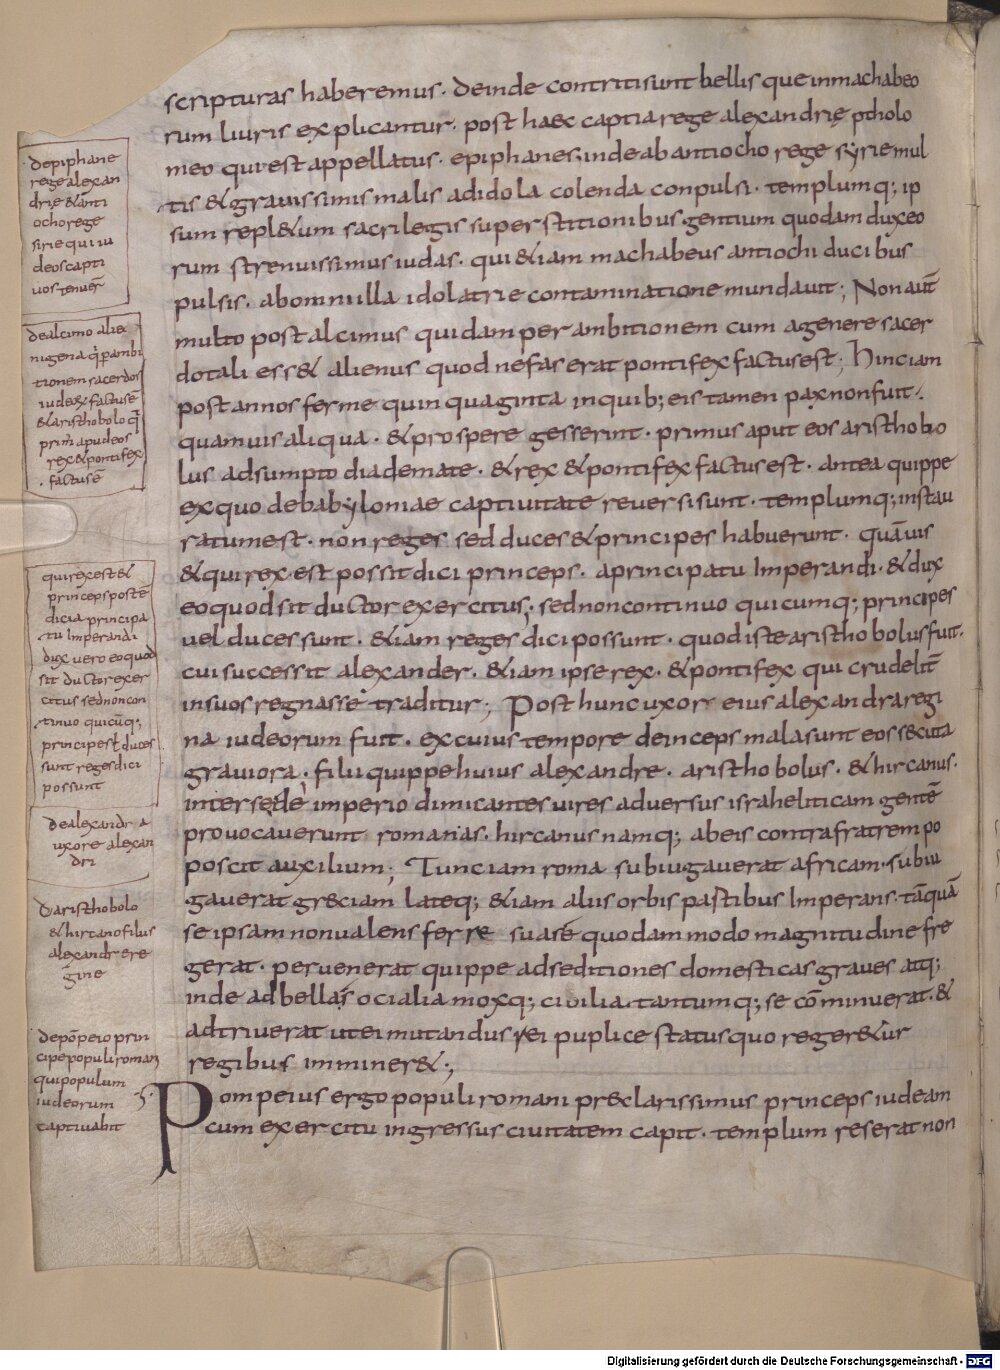 scripturas haberemus. deinde contriti sunt bellis que in machabeo
rum liuris explicantur. post haec capti a rege alexandrię ptholo
meo qui est appellatus. epiphanes. inde ab antiocho rege syrie mul
tis & grauissimis malis ad idola colenda conpulsi. templumq; ip
sum repl&um sacrilegis superstitionibus gentium quod am dux eo
rum strenuissimus iudas. qui &iam machabeus antiochi ducibus
pulsis. ab omni illa idolatrie contaminatione mundauit; Non aut̄
multo post alcimus quidam per ambitionem cum a genere sacer
dotali ess& alienus quod nefas erat pontifex factus est; hinc iam
post annos ferme quinquaginta in quib; eis tamen pax non fuit.
quamuis aliqua. & prospere gesserint. primus aput eos aristhobo
lus adsumpto diademate. & rex & pontifex factus est. antea quippe
ex quo de babyloniae captiuitate reuersi sunt. templumq; instau
ratum est. non reges sed duces & principes habuerunt. quāuis
& qui rex est possit dici princeps. a principatu Imperandi. & dux
eo quod sit ductor exercitus; sed non continuo quicumq; principes
uel duces sunt. &iam reges dici possunt. quod iste aristhobolus fuit.
cui successit alexander. &iam ipse rex. & pontifex qui crudelit̄
in suos regnasse traditur; Post hunc uxor eius alexandra regi
na iudeorum fuit. ex cuius tempore deinceps mala sunt eos secuta
grauiora. filii quippe huius alexandre. aristhobolus. & hircanus.
inter se de imperio dimicantes uires aduersus israheliticam gentē
prouocauerunt romanas. hircanus namq; ab eis contra fratrem po
poscit auxilium; Tunc iam roma subiugauerat africam. subiu
gauerat greciam lateq; &iam aliis orbis partibus Imperans. tāquā
se ipsam non ualens ferre sua sē quodam modo magnitudine fre
gerat. peruenerat quippe ad seditiones domesticas graues atq;
inde ad bella socialia moxq; ciuilia. tantumq; se cōminuerat. &
adtriuerat ut ei mutandus rei puplice status quo reger&ur
regibus imminer&;
Pompeius ergo populi romani preclarissimus princeps iudeam
cum exercitu ingressus ciuitatem capit. templum reserat non
de piphane
rege alexan
drie & anti
ocho rege
sirie qui iu
deos capti
uos tenuer̄
de alcimo alie
nigena q̇ p ambi
tionem sacerdos
iudeoꝝ factus ē
& aristhobolo q̇
prim̄ apud eos
rex & pontifex
factus ē
qui rex est &
princeps post ē
dici a principa
tu Imperandi
dux uero eo quod
sit ductor exer
citus sed non con
tinuo quicūq;
principes t̄ duces
sunt reges dici
possunt
de alexandra
uxore alexan
dri
d aristhobolo
& hircano filius
alexandre re
gine
de pōpeio prin
cipe populi roman
qui populum
iudeorum
captiuabit
Digitalisierung gefördert durch die Deutsche Forschungsgemeinschaft - DFG